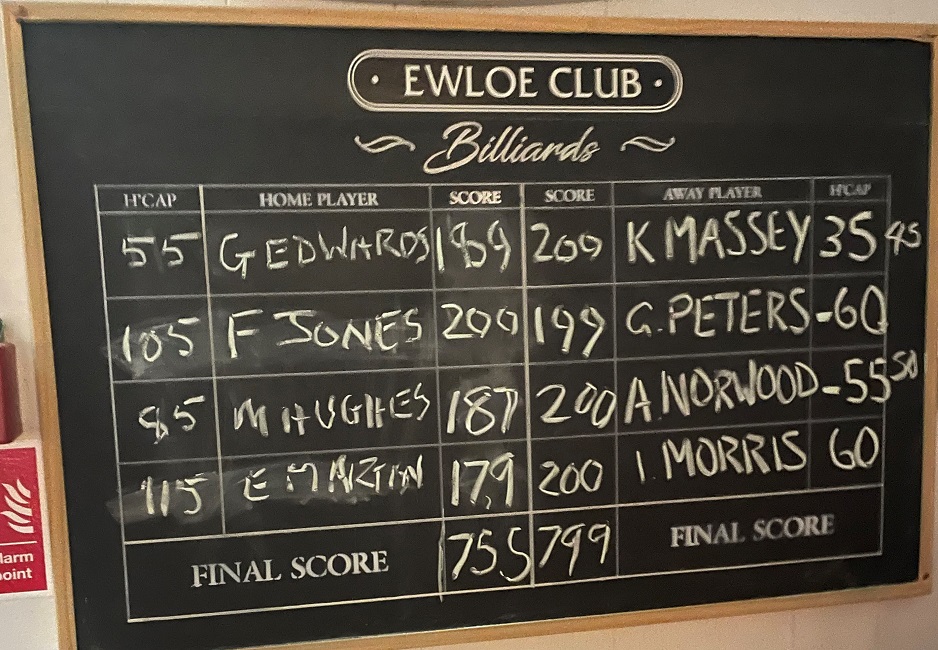 EWLOE CLUB
Billiards
H'CAP HOME PLAYER SCORE SCORE AWAY PLAYER H'CAP
55 G EDWARDS 189 200 K MASSEY 35 45
105 F JONES 200 199 G. PETERS -60
85 M HUGHES 187 200 A. NORWOOD -55 50
115 E MARTIN 179 200 I. MORRIS 60
FINAL SCORE 755 799 FINAL SCORE
larm
point